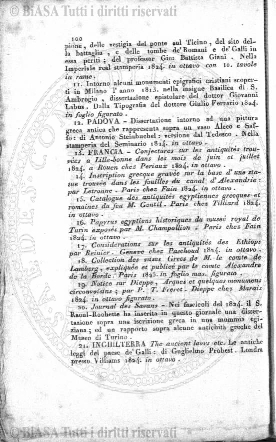 © BiASA - Tutti i diritti riservati
100
pione, delle vestigia del ponte sul Ticino, del sito del-
la battaglia, e delle tombe de' Romani e de' Galli in
essa periti; del professor Gio. Battista Giani. Nella
Imperiale real stamperia 1824. in ottavo con 11. tavole
in rame.
11. Intorno alcuni monumenti epigrafici cristiani scoper-
ti in Milano l'anno 1813. nella insigne Basilica di S.
Ambrogio, dissertazione epistolare del dottor Giovanni
Labus. Dalla Tipografia del dottor Giulio Ferrario 1824.
in foglio figurato.
12. PADOVA - Dissertazione intorno ad una pittura
greca antica che rappresenta sopra un vaso Alceo e Saf-
fo: di Antonio Steinbuchel: versione dal Tedesco. Nella
stamperia del Seminario 1824. in ottavo.
13. FRANCIA - Conjectures sur les antiquités trou-
vées a Lille-bonne dans les mois de juin et juillet
1824. a Rouen chez Periaux 1824. in ottavo.
14. Inscription grecque gravée sur la base d'une sta-
tue trouvée dans les fouilles du canal d'Alexandrie:
par Letronne. Paris chez Fain 1824. in ottavo.
15. Catalogue des antiquités egyptiennes grecques et
romaines du feu M. Goutil. Paris chez Pilliard 1824.
in ottavo.
16. Papyrus egyptiens historiques du museé royal de
Turin exposès par M. Champollion. Paris chez Fain
1824. in ottavo.
17. Considerations sur les antiquités des Ethiops
par Reinier. Geneve chez Paschoud 1824. in ottavo.
18. Collection des vases Grecs de M. le comte de
Lamberg, expliquée et publiée par le comte Alexandre
de la Borde. Paris 1823. in foglio mas. figurato.
19. Notice sur Dieppe, Arques et quelques monumens
circonvoisins; par P. T. Feret. Dieppe chez Marais
1824. in ottavo figurato.
20. Journal des Savans - Nei fascicoli del 1824. il S.
Raoul-Rochette ha inserita in questo giornale una disser-
tazione sopra una iscrizione greca in una mommia egi-
ziana; ed un rapporto sopra alcune antichità greche del
Museo di Torino.
21. INGHILTERRA The ancient laws etc. Le antiche
leggi del paese de' Galli: di Guglielmo Probest. Londra
presso Villiams 1824. in ottavo.
© BiASA - Tutti i diritti riservati